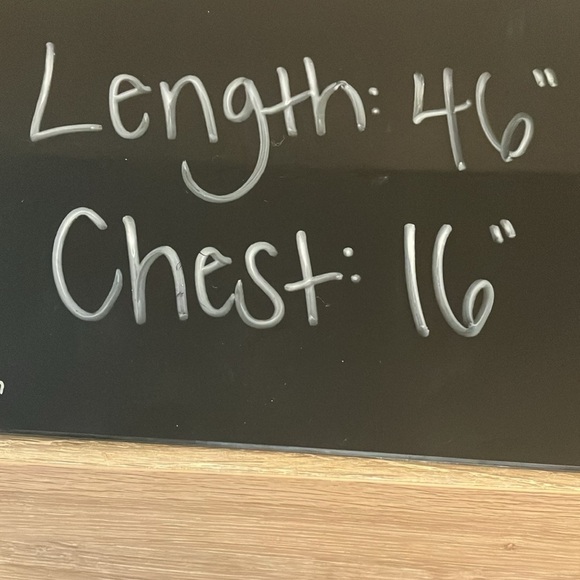 Length: 46"
Chest: 16"